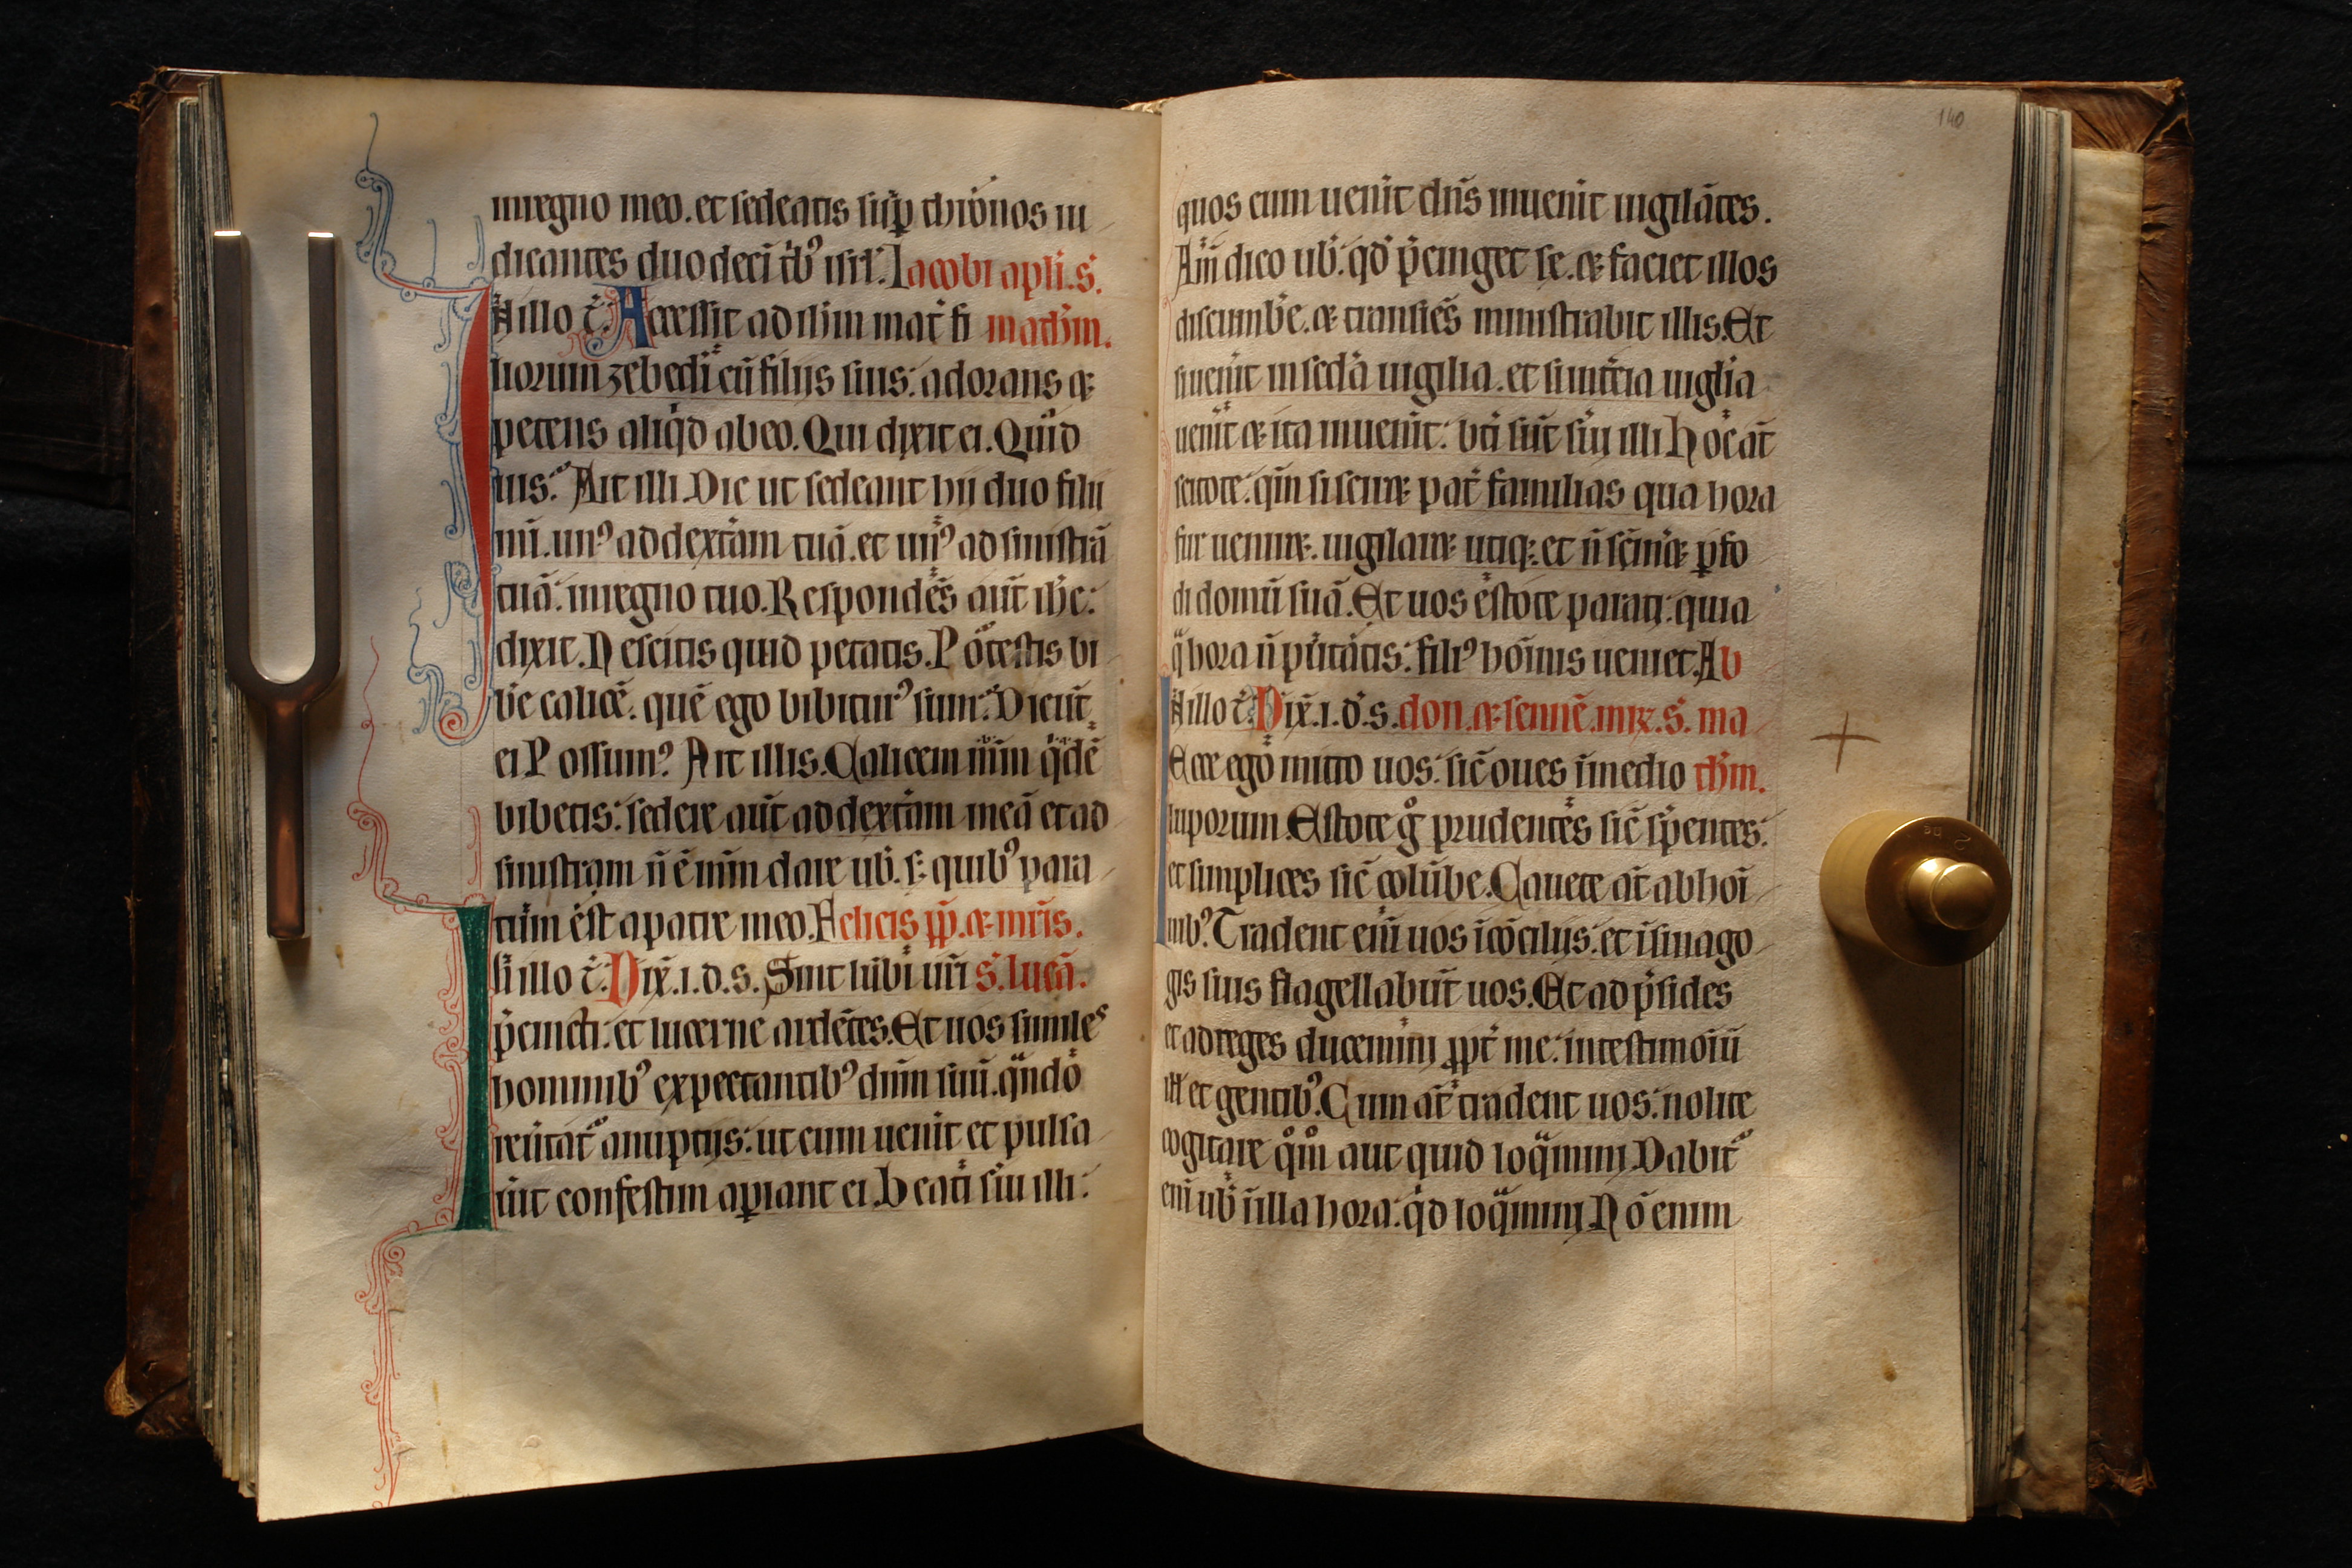 inregno meo. et sedeatis suꝑ thronos iu
dicantes duodecī tͥbꝰ isrl̓. Iacobi apli. s̄.
Nillo t̄. Accessit ad ihm mat̄ fi mathm.
liorum zebedi cū filijs suis: adorans ⁊
petens aliqͥd abeo. Qui dixit ei. Quid
uis? Ait illi. Dic ut sedeant hii duo filii
mī. unꝰ addextͣam tuā. et unꝰ ad sinistrā
tuā: inregno tuo. Respondēs aūt ihc:
dixit. Nescitis quid petatis. Potestis bi
be calicē. quē ego bibiturꝰ sum? Dicūt
ei Possumꝰ. Ait illis. Calicem mm̄ qͥdē
bibetis: sedere aūt addextͣam meā et ad
sinistram n̄ ē mm̄ dare uob̓. s; quibꝰ para
tum est apatre meo. Felicis pp̄. ⁊ mr̄is.
N illo t̄. Dix̄. i. d. s. Sint lūbi urī s̄. lucā.
p̄cincti. et lucerne ardētes. Et uos similes
hominibꝰ expectantibꝰ dn̄m suū. qͣndo
reūtat̄ anuptijs: ut cum uenit et pulsa
ūit confestim aꝑiant ei. Beati sūi illi:
140
quos cum uenit dn̄s inuenit uigilātes.
Am̄ dico uob̓. qd̓ p̄cinget se. ⁊ faciet illos
discumbe. ⁊ transiēs ministrabit illis. Et
siuenit insecͣda uigilia. et sintͨia uiglia
uenit ⁊ ita inuenit: bti sūt sūi illi. Hoc at̄
scitote: qm̄ si sciret pat̄ familias qua hora
fur ueniret. uigilaret utiq;. et n̄ sīneret ꝑfo
di domū suā. Et uos estote parati. quia
qͣ hora n̄ putatis: filiꝰ hōinis ueniet. Ab
Nillo t̄. Dix̄. i. d. s. don. ⁊ sennē. mr̄. s̄. ma
Ecce ego mitto uos: sic̄ oues inmedio thm.
luporum. Estote gͦ prudentes sic̄ sp̄entes:
et simplices sic̄ colūbe. Cauete at̄ abhoī
nibꝰ. Tradent enī uos īcōcilijs: et īsinago
gis suis flagellabūt uos. Et ad p̄sides
et adreges ducemini ꝓpt̄ me: intestimoiū
ill̓ et gentibꝰ. Cum at̄ tradent uos: nolite
cogitare qͦm̊ aut quid loqͣmini. Dabit̄
enī uob̓ ī illa hora: qͥd loqͣmini. Nō enim